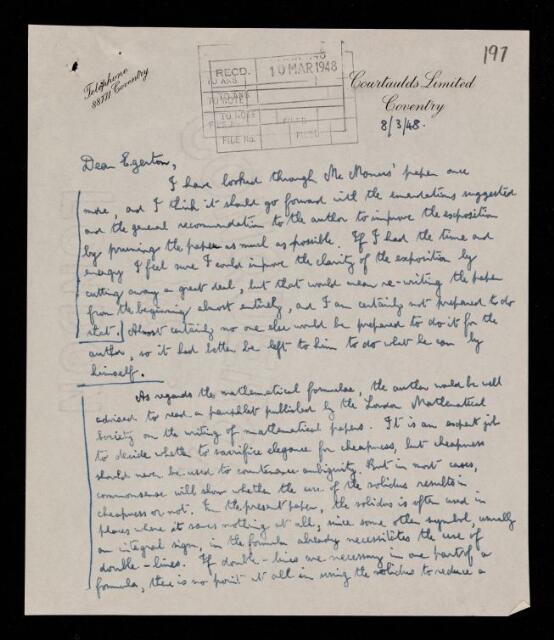 197
Telephone
88771 Coventry
RECD. 10 MAR 1948
TO NOTE
FILE No.
Courtaulds Limited
Coventry
8/3/48.
Dear Egerton,
I have looked through Mc Manus' paper once
more, and I think it should go forward with the emendations suggested
and the general recommendation to the author to improve the exposition
by pruning the paper as much as possible. If I had the time and
energy I feel sure I could improve the clarity of the exposition by
cutting away a great deal, but that would mean re-writing the paper
from the beginning almost entirely, and I am certainly not prepared to do
that. Almost certainly no one else would be prepared to do it for the
author, so it had better be left to him to do what he can by
himself.
As regards the mathematical formulae, the author would be well
advised to read a pamphlet published by the London Mathematical
Society on the writing of mathematical papers. It is an expert job
to decide whether to sacrifice elegance for cheapness, but cheapness
should never be used to countenance ambiguity. But in most cases,
commonsense will show whether the use of the solidus results in
cheapness or not. In the present paper, the solidus is often used in
places where it saves nothing at all, since some other symbol, usually
an integral sign, in the formula already necessitites the use of
double-lines. If double-lines are necessary in one part of a
formula, there is no point at all in using the solidus to reduce a